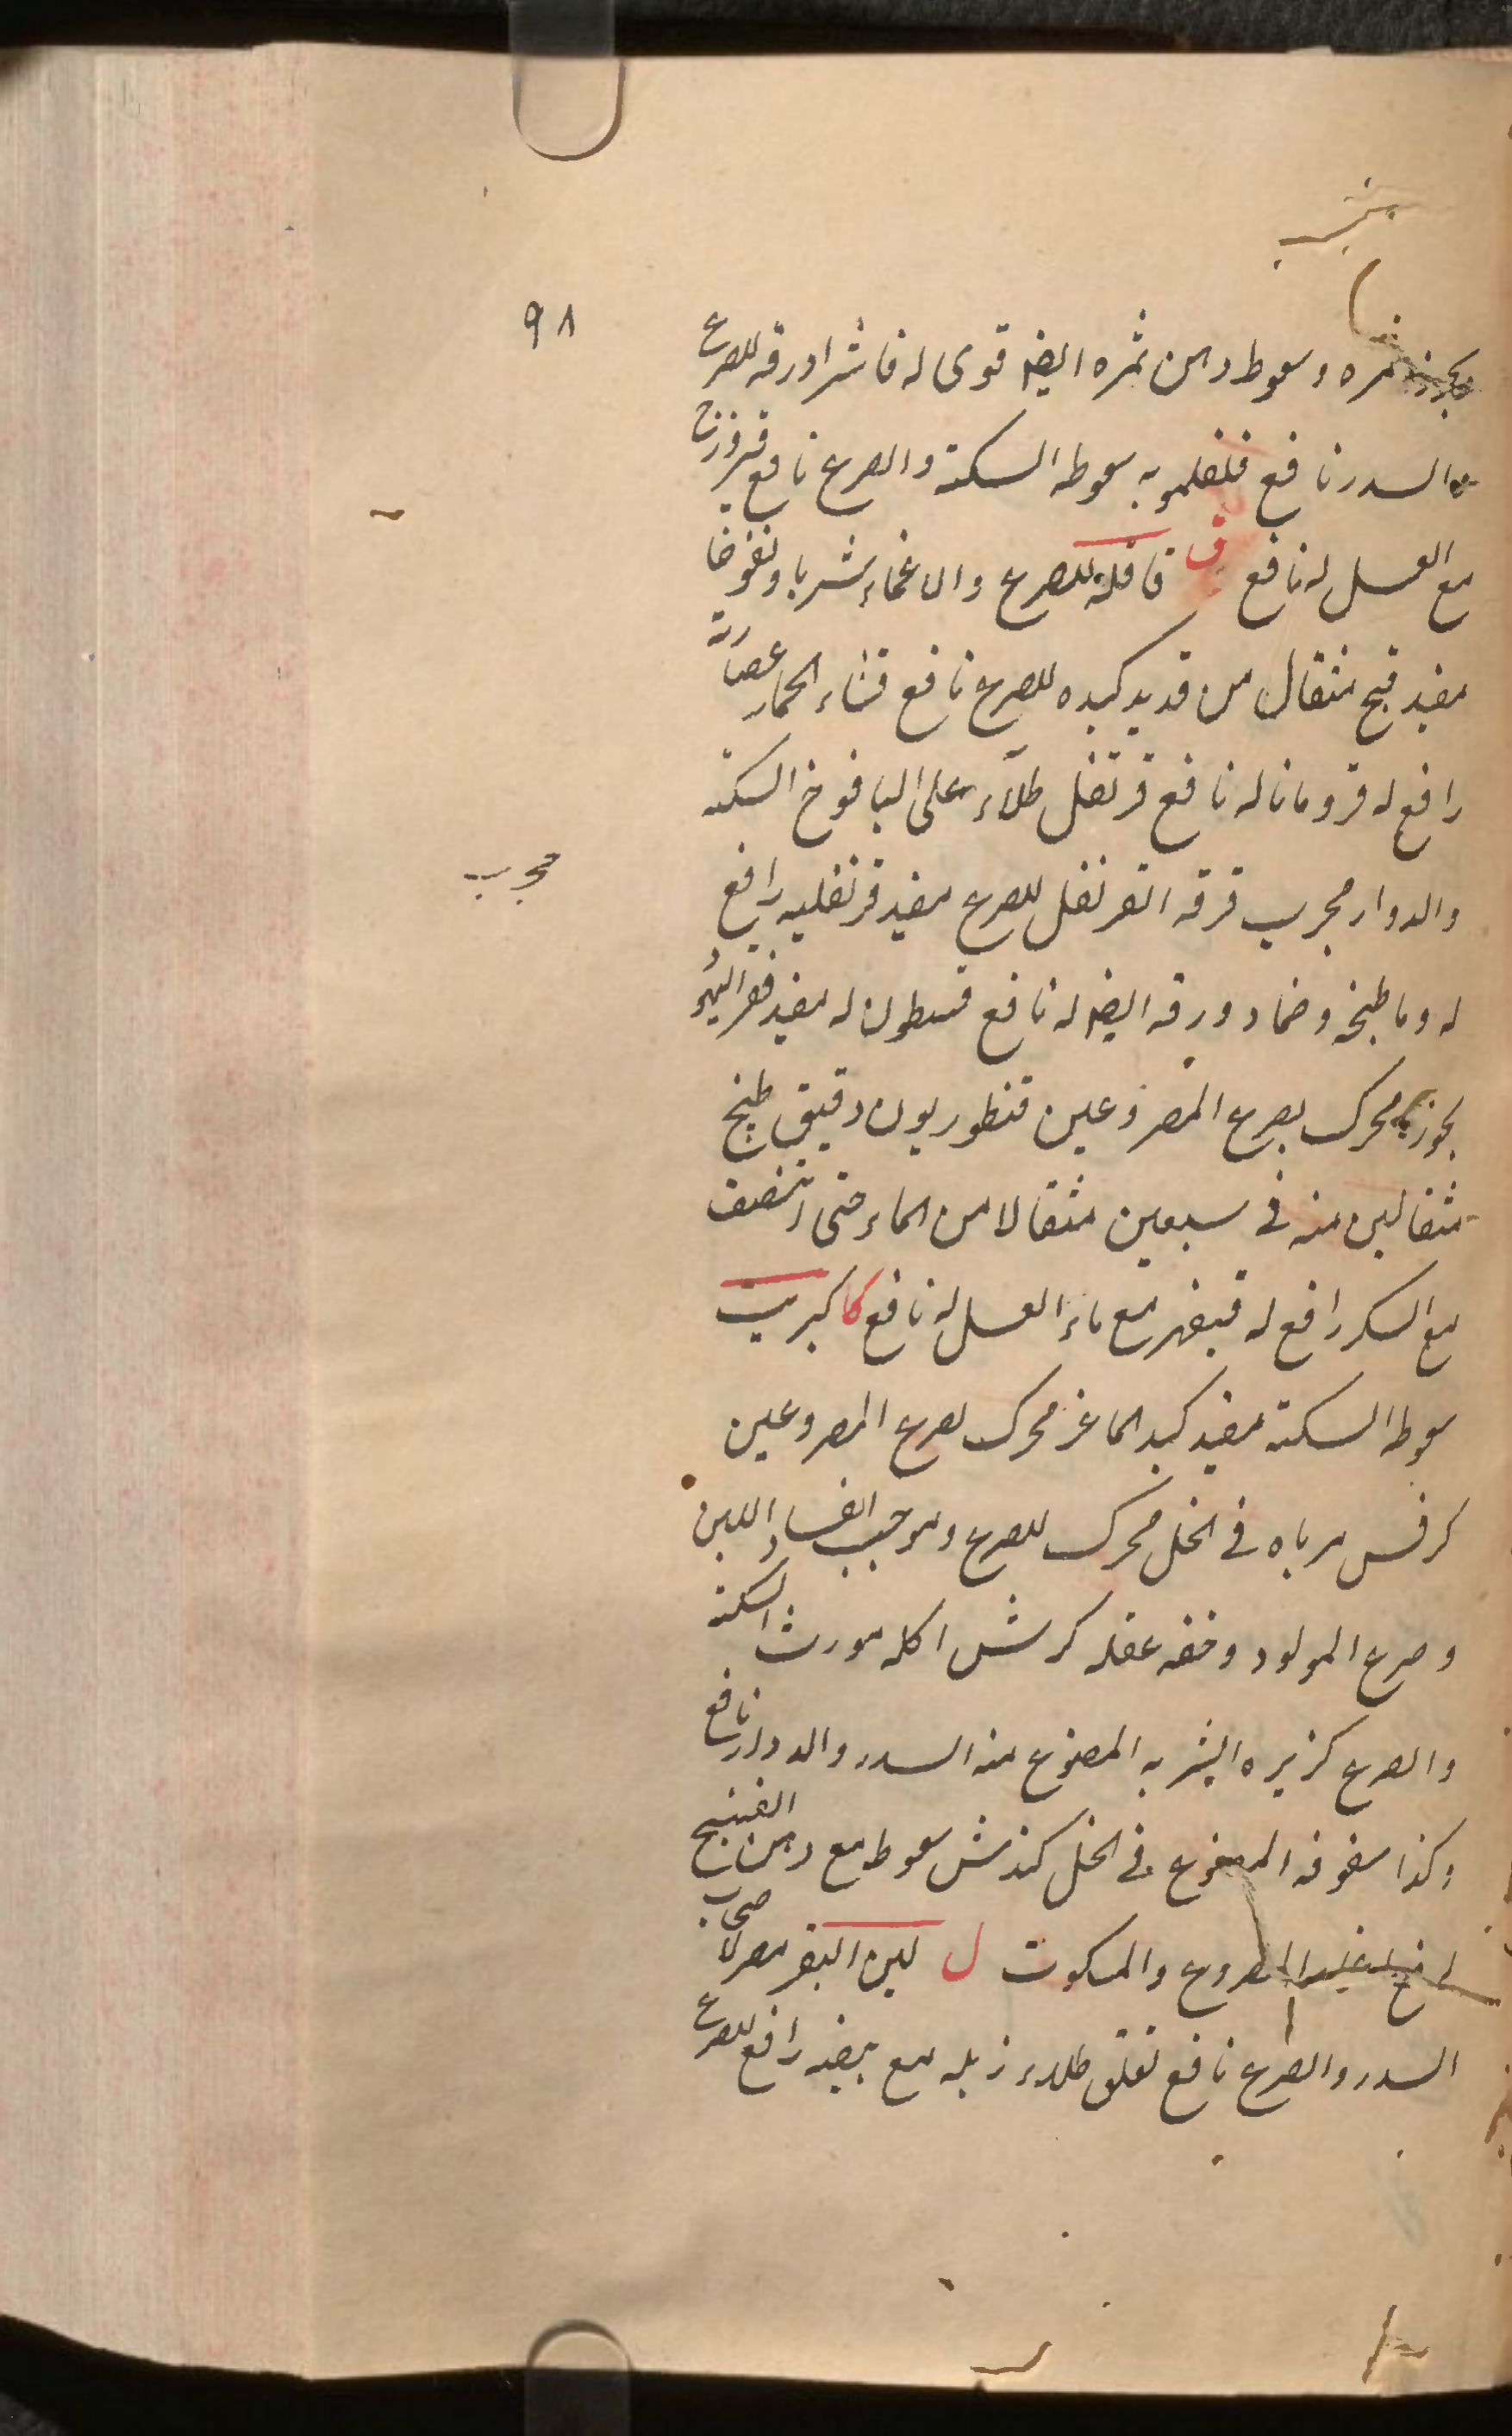 ٩٨
بخور ثمره وسعوط دهن ثمره ايضا قوى له فاشرا ورقه للصرع
والسدر نافع فلفلمويه سعوطه السكتة والصرع نافع فيروزج
مع العسل له نافع ق قاقلة للصرع والاغماء شربا ونفوخا
مفيد قبج مثقال من قديد كبده للصرع نافع قثاء الحمار عصارته
رافع له قردمانا له نافع قرنفل طلاء على اليافوخ السكته
والدوار مجرب قرفه القرنفل للصرع مفيد قرنفليه رافع
مجرب
له وما طبخه وضماد ورقه ايضا له نافع قسطرن له مفيد قفر اليهود
بخوره محرك لصرع المصروعين قنطوريون دقيق طبخ
مثقالين منه فى سبعين مثقالا من الماء حتى انتصف
مع السكر رافع له قيقهر مع ماء العسل له نافع كا كبريت
سعوطه السكتة مفيد كبد الماعز محرك لصرع المصروعين
كرفس مرباه فى الخل محرك للصرع وموجب لفساد اللبن
وصرع المولود وخفه عقله كرش اكله مورث السكتة
والصرع كزبره البشربه المصنوع منه السدر والدوار نافع
وكذا سفوفه المصنوع فى الخل كندش سعوط مع دهن البنفسج
المصروع والمسكوت ل لبن البقر مصر لاصحاب
السدر والصرع نافع لقلق طلاء زبله مع بيضه رافع للصرع